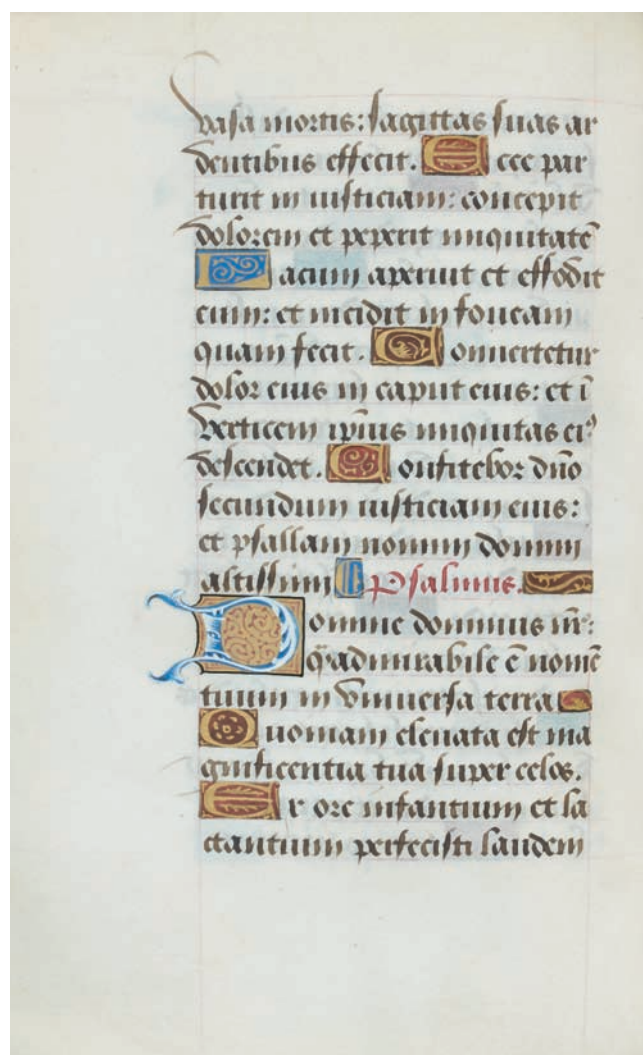 vasa mortis: sagittas suas ar
dentibus effecit. Ecce par
turit in iusticiam: concepit
dolorem et peperit iniquitatē
Lacum aperuit et effodit
eum: et incidit in foueam
quam fecit. Conuertetur
dolor eius in caput eius: et ī
verticem ip̄ius iniquitas ei⁹
descendet. Confitebor dn̄o
secundum iusticiam eius:
et psallam nomini domini
altissimi Psalmus.
Domine dominus nr̄:
q̄ admirabile ē nomē
tuum in vniuersa terra
Quoniam eleuata est ma
gnificentia tua super celos.
Ex ore infantium et la
ctantium perfecisti laudem